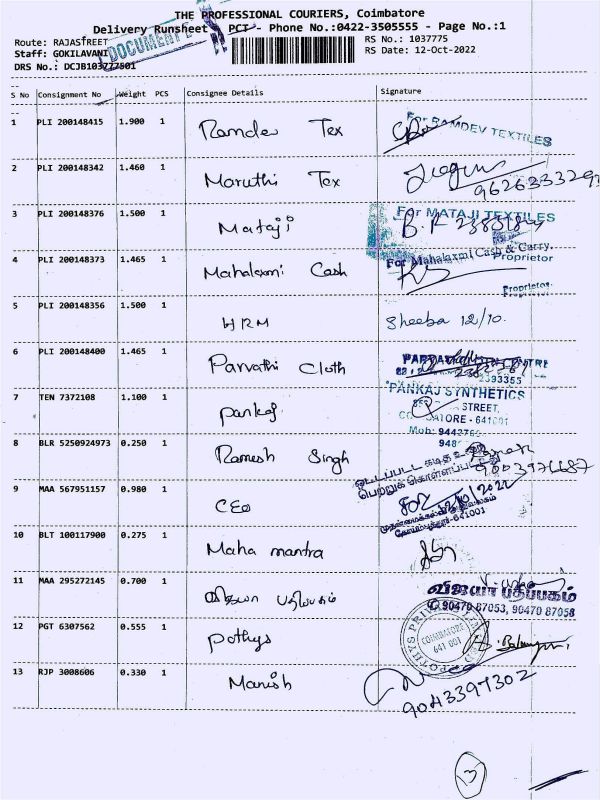 THE PROFESSIONAL COURIERS, Coimbatore
Delivery Runsheet PCT - Phone No.:0422-3505555 - Page No.:1
DOCUMENT
Route: RAJASTREET
RS No.: 1037775
Staff: GOKILAVANI
RS Date: 12-Oct-2022
DRS No.: DCJB103777501
S No Consignment No Weight PCS Consignee Details Signature
1 PLI 200148415 1.900 1 Ramdev Tex
For RAMDEV TEXTILES
2 PLI 200148342 1.460 1 Maruthi Tex
9626333293
3 PLI 200148376 1.500 1 Mataji
For MATAJI TEXTILES
4 PLI 200148373 1.465 1 Mahalaxmi Cash
For Mahalaxmi Cash & Carry
Proprietor
Proprietor
5 PLI 200148356 1.500 1 HRM Sheeba 12/10.
6 PLI 200148400 1.465 1 Parvathi Cloth
2393355
7 TEN 7372108 1.100 1 Pankaj
PANKAJ SYNTHETICS
STREET,
COIMBATORE - 641001
8 BLR 5250924973 0.250 1 Ramesh Singh
9003976687
9 MAA 567951157 0.980 1 CEO
12/10/2022
641001
10 BLT 100117900 0.275 1 Maha mantra
11 MAA 295272145 0.700 1 விஜயா பதிப்பகம்
விஜயா பதிப்பகம்
90470 87053, 90470 87058
12 PGT 6307562 0.555 1 Pothys
COIMBATORE
641 001
13 RJP 3008606 0.330 1 Manish
9043397302